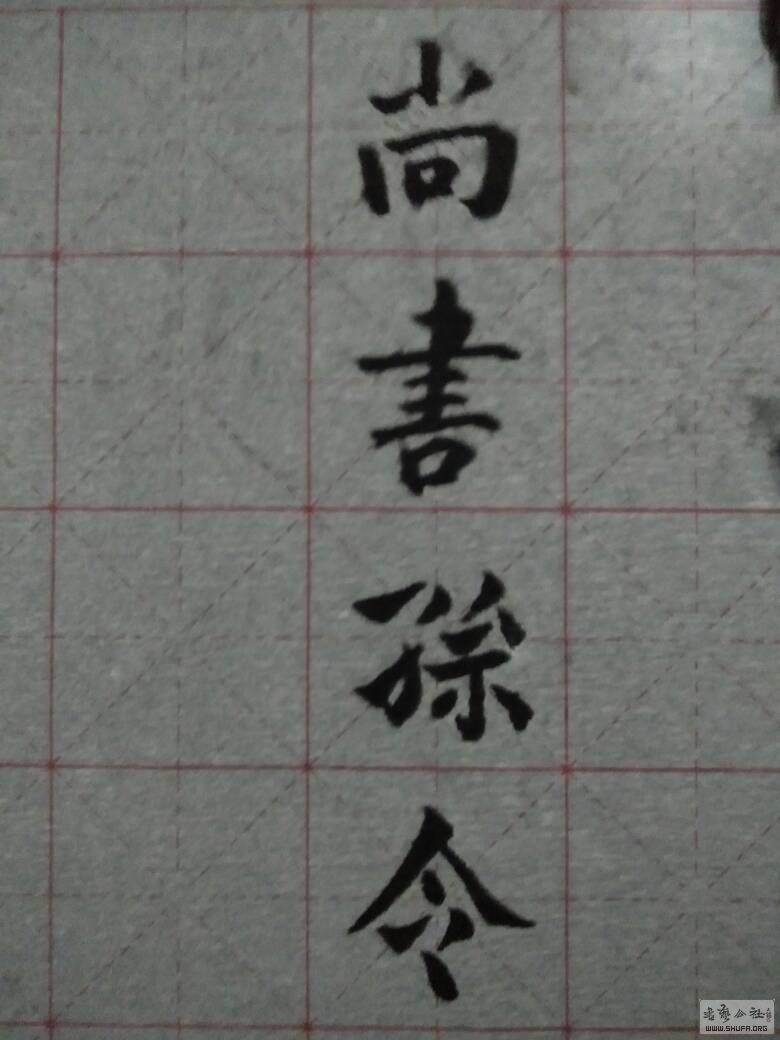 尚書孫令
书艺公社
WWW.SHUFA.ORG